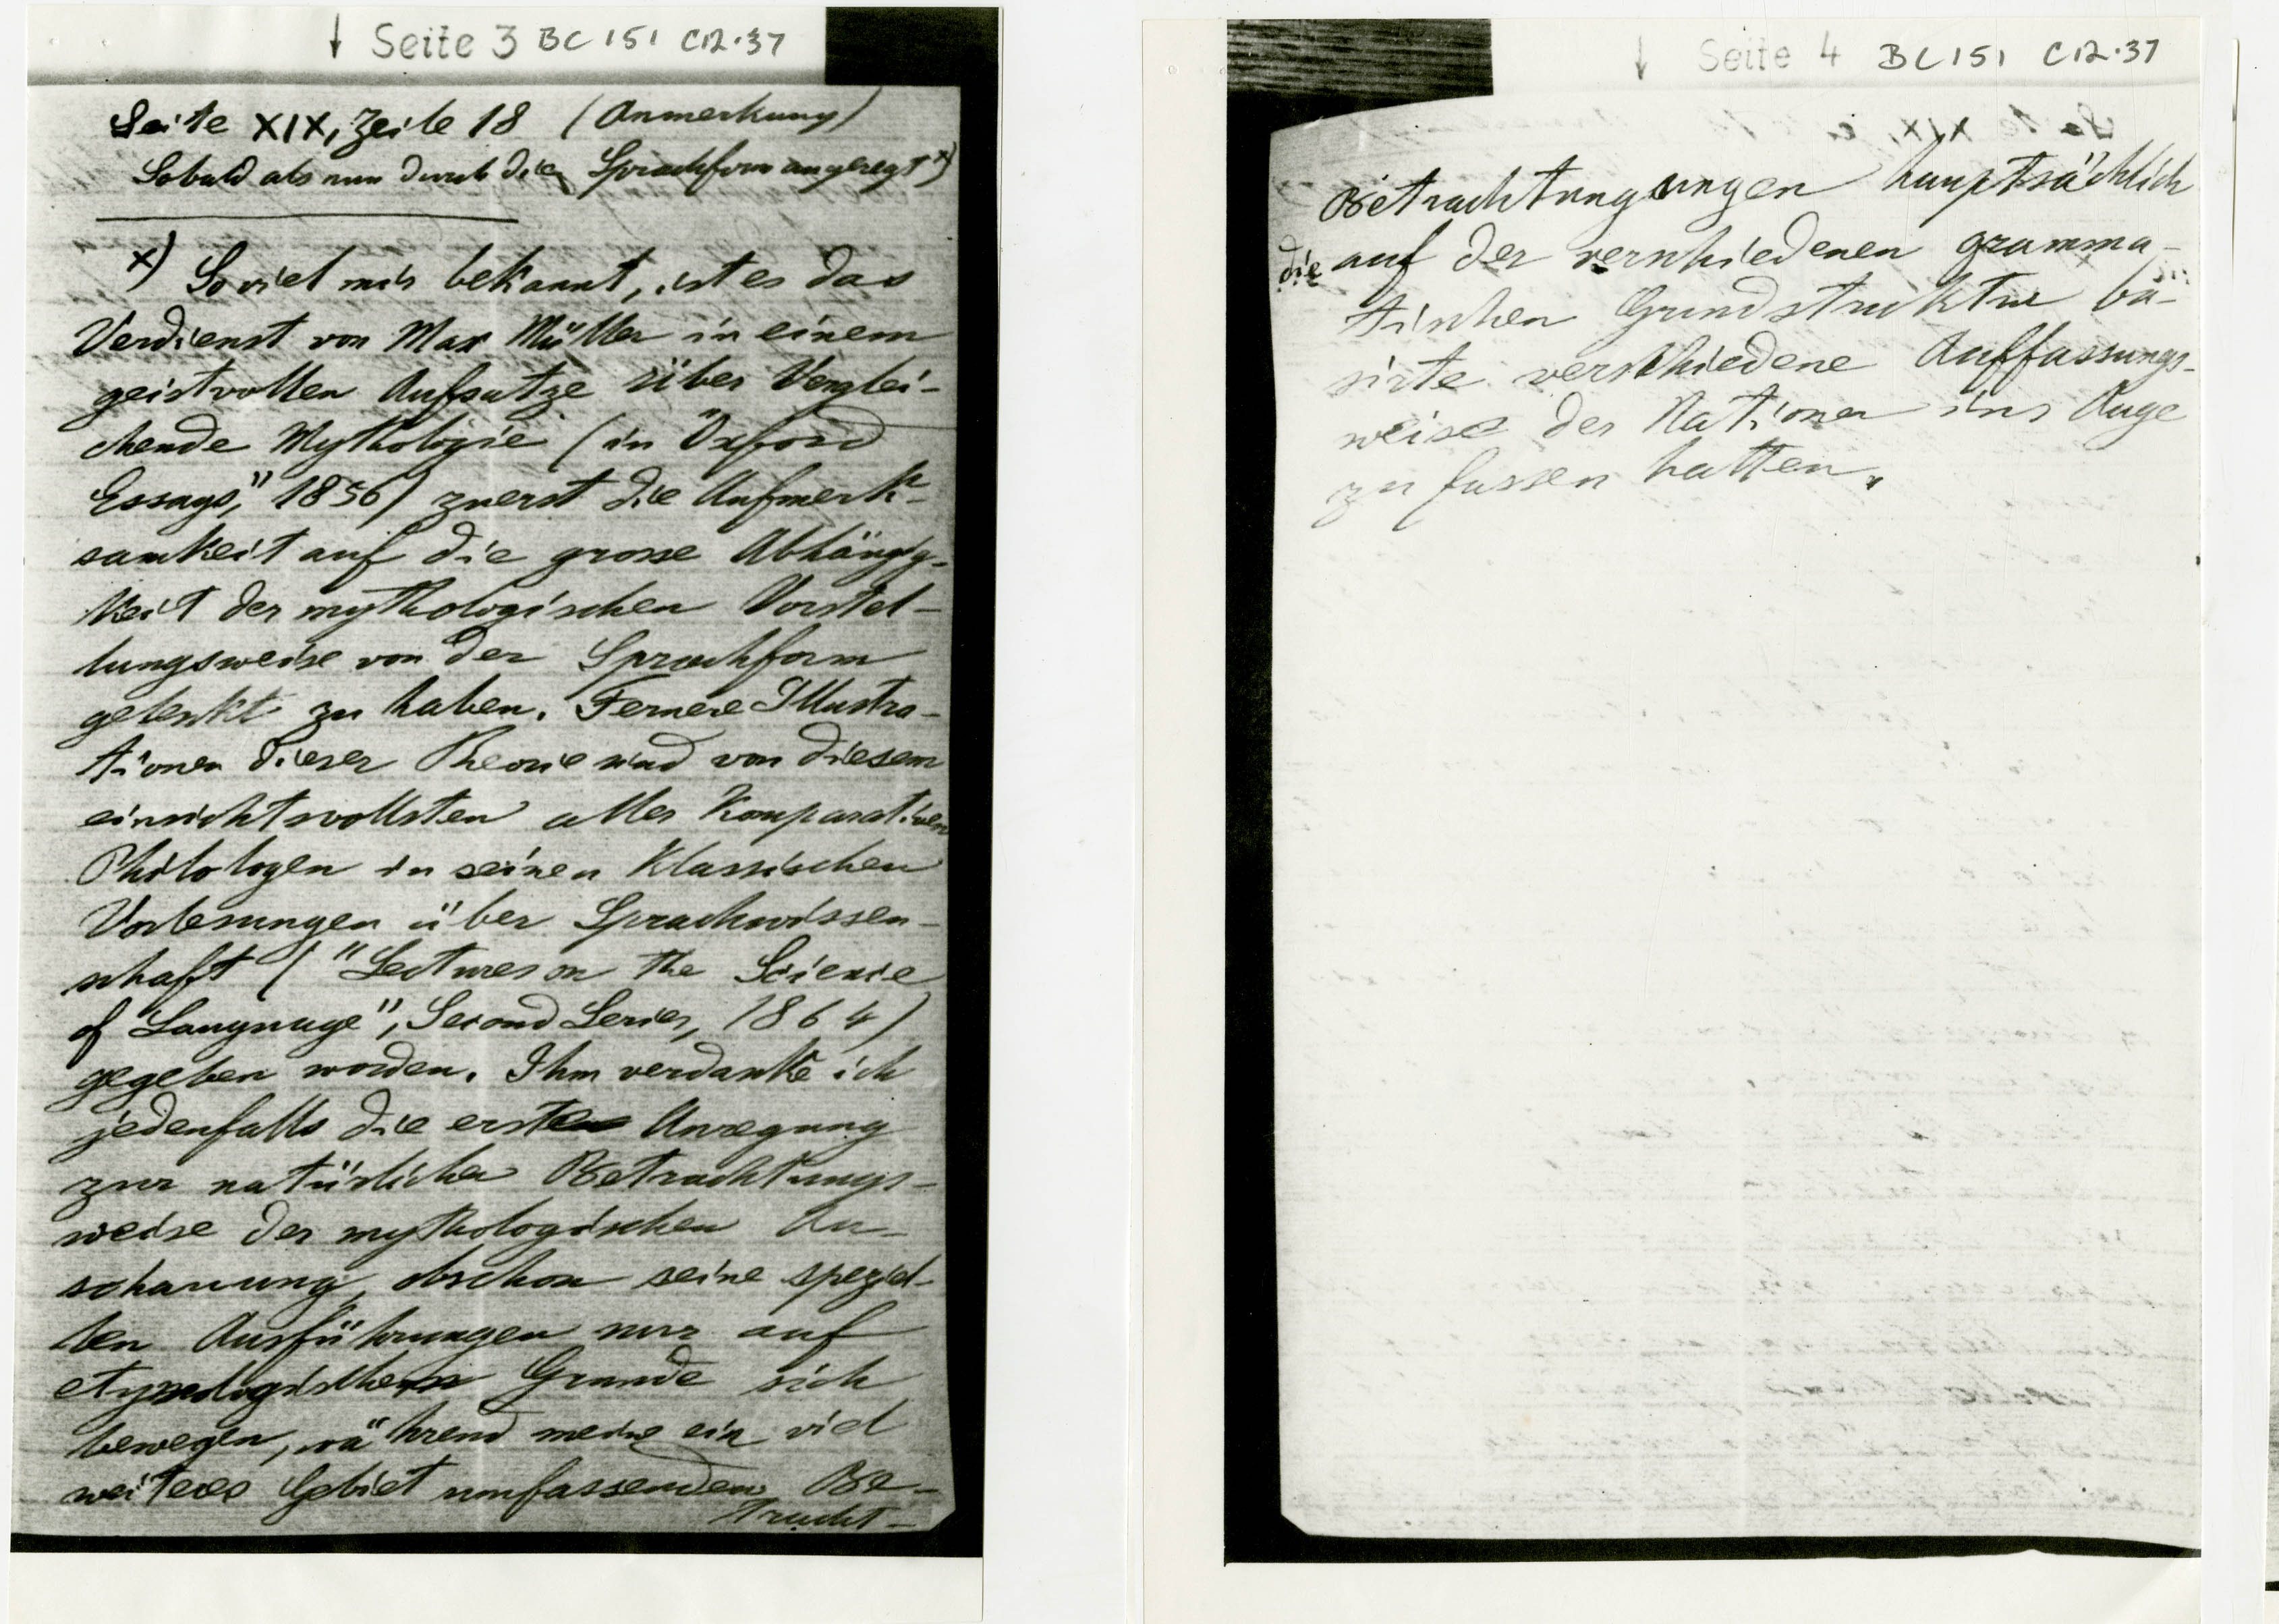 ↓ Seite 3 BC 151 C12.37
Seite XIX, Zeile 18 (Anmerkung)
Sobald als nun durch die Sprachform angeregt x)
x) So viel mir bekannt, ist es das
Verdienst von Max Müller in einem
geistvollen Aufsatze über Verglei-
chende Mythologie (in "Oxford
Essays", 1856) zuerst die Aufmerk-
samkeit auf die grosse Abhängig-
keit der mythologischen Vorstel-
lungsweise von der Sprachform
gelenkt zu haben. Fernere Illustra-
tionen dieser Theorie sind von diesem
einsichtsvollsten aller Komparativen
Philologen in seinen Klassischen
Vorlesungen über Sprachwissen-
schaft ("Lectures on the Science
of Language", Second Series, 1864)
gegeben worden. Ihm verdanke ich
jedenfalls die erste Anregung
zur natürlichen Betrachtungs-
weise der mythologischen An-
schauung, obschon seine speziel-
len Ausführungen nur auf
etymologischem Grunde sich
bewegen, während meine ein viel
weiteres Gebiet umfassenden Be-
tracht-
↓ Seite 4 BC 151 C12.37
Betrachtungungen hauptsächlich
die auf der verschiedenen gramma-
tischen Grundstruktur ba-
sirte verschiedene Auffassungs-
weise der Nationen ins Auge
zu fassen hatten.